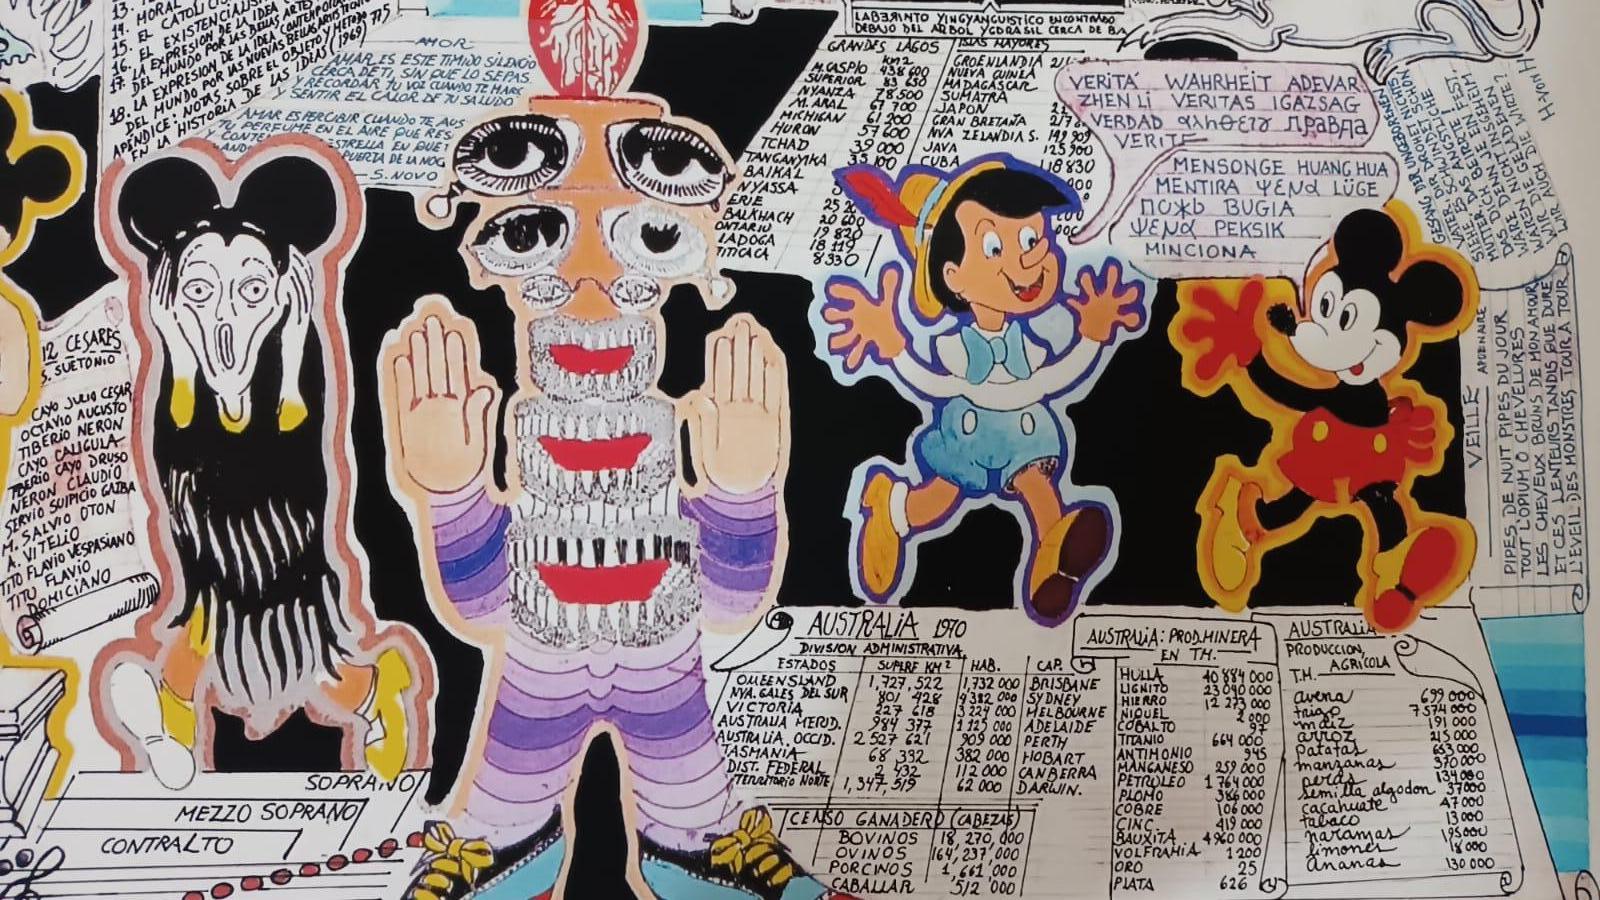 13.
14. MORAL
15. EL CATOLI
16. EL EXISTENCIALIS
17. LA EXPRESION DE LA IDEA
DEL MUNDO POR LAS BELLAS ARTES
18. LA EXPRESION DE LA IDEA CONTEMPO
DEL MUNDO POR LAS NUEVAS BELLAS ARTES
APENDICE: NOTAS SOBRE EL OBJETO Y METODO 775
EN LA HISTORIA DE LAS IDEAS (1969)
AMOR
AMAR ES ESTE TIMIDO SILENCIO
CERCA DE TI, SIN QUE LO SEPAS
Y RECORDAR TU VOZ CUANDO TE MARC
Y SENTIR EL CALOR DE TU SALUDO
AMAR ES PERCIBIR CUANDO TE AUS
TU PERFUME EN EL AIRE QUE RES
Y CONTE ESTRELLA EN QUE T
ANDO PUERTA DE LA NOC
S. NOVO
LABERINTO YINGYANGUISTICO ENCONTRADO
DEBAJO DEL ARBOL YGDRASIL CERCA DE BA
GRANDES LAGOS
KM2
M. CASPIO 438 600
SUPERIOR 83 650
NYANZA 78.500
M. ARAL 67 700
MICHIGAN 61 200
HURON 57 600
TCHAD 39 000
TANGANYIKA 35 100
BAIKAL
NYASSA
ERIE 25
BALKHACH 20 600
ONTARIO 19 820
LADOGA 18 119
TITICACA 8330
ISLAS MAYORES
GROENLANDIA
NUEVA GUINEA
MADAGASCAR
SUMATRA
JAPON
GRAN BRETAÑA
NVA ZELANDIA S. 149 909
JAVA 125 900
CUBA 118 830
VERITA' WAHRHEIT ADEVAR
ZHEN LI VERITAS IGAZSAG
VERDAD αληθεια ПРАВДА
VERITE
MENSONGE HUANG HUA
MENTIRA ΨΕΝΑ LÜGE
ПОЖЬ BUGIA
ΨΕΝΑ PEKSIK
MINCIONA
GESANG DER UNGEBORENEN
VATER, DIR DROHET NICHTS
SIEHE, ES SCHWINDET SCHON
MUTTER, DAS DICH ÄNGSTLICHTE
DAS MISGESCHICK
WÄRE DENN JE EIN FEST
WÄREN NICHT INSGEHEIM
WIR DIE GELADENEN
WIR AUCH DIE WIRTE?
H. von H
APOLLINAIRE
VEILLE
PIPES DE NUIT PIPES DU JOUR
TOUT L'OPIUM O CHEVELURES
LES CHEVEUX BRUNS DE MON AMOUR
ET CES LENTEURS TANDIS QUE DURE
L'EVEIL DES MONSTRES, TOUR A TOUR
12 CESARES
S. SUETONIO
CAYO JULIO CESAR
OCTAVIO AUGUSTO
TIBERIO NERON
CAYO CALIGULA
TIBERIO CAYO DRUSO
NERON CLAUDIO
SERVIO SULPICIO GALBA
M. SALVIO OTON
A. VITELIO
TITO FLAVIO VESPASIANO
TITU FLAVIO
DOMICIANO
SOPRANO
MEZZO SOPRANO
CONTRALTO
AUSTRALIA 1970
DIVISION ADMINISTRATIVA
ESTADOS SUPERF KM2 HAB. CAP.
QUEENSLAND 1,727,522 1,732 000 BRISBANE
NVA. GALES DEL SUR 801 428 4382 000 SYDNEY
VICTORIA 227 618 3 224 000 MELBOURNE
AUSTRALIA MERID. 984 377 1 125 000 ADELAIDE
AUSTRALIA, OCCID. 2 527 621 909 000 PERTH
TASMANIA 68 332 382 000 HOBART
DIST. FEDERAL 2 432 112 000 CANBERRA
TERRITORIO NORTE 1,347,519 62 000 DARWIN.
CENSO GANADERO (CABEZAS)
BOVINOS 18 270,000
OVINOS 164,237,000
PORCINOS 1,661,000
CABALLAR 512 000
AUSTRALIA: PROD. MINERA
EN TM.
HULLA 40 884 000
LIGNITO 23 040 000
HIERRO 12 273 000
NIQUEL 2 000
COBALTO 97
TITANIO 664 000
ANTIMONIO 945
MANGANESO 259 000
PETROLEO 1 764 000
PLOMO 386 000
COBRE 106 000
CINC 419 000
BAUXITA 4 960 000
VOLFRAMIA 1 200
ORO 25
PLATA 626
AUSTRALIA
PRODUCCION,
AGRICOLA
T.M.
avena 699 000
trigo 7 574 000
maiz 191 000
arroz 215 000
patatas 653 000
manzanas 370 000
peras 134 000
semilla algodon 37000
cacahuate 47 000
tabaco 13 000
naranjas 195 000
limones 18 000
ananas 130 000